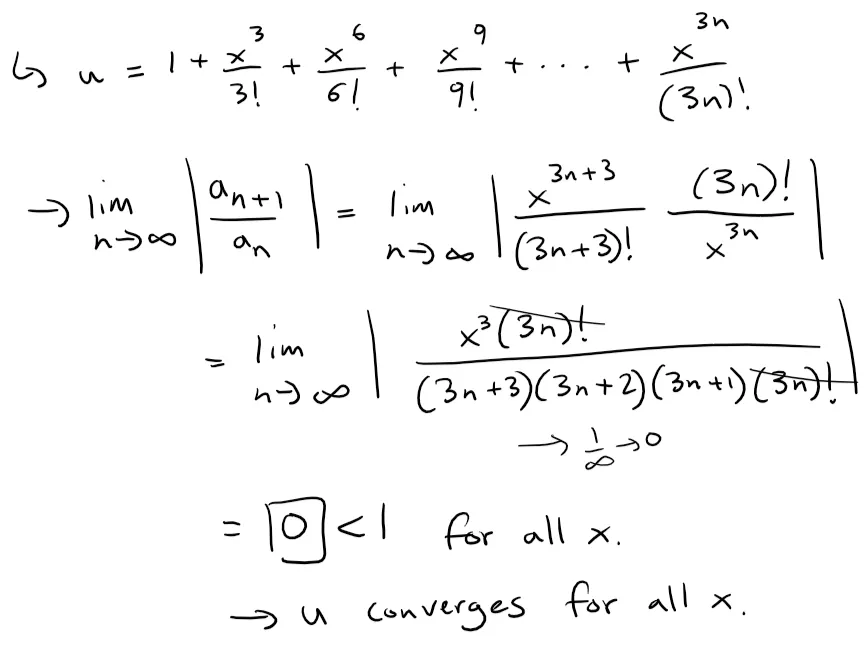 ↳ u = 1 + x³/3! + x⁶/6! + x⁹/9! + ··· + x³ⁿ/(3n)!
→ lim n→∞ |aₙ₊₁/aₙ| = lim n→∞ |x³ⁿ⁺³/(3n+3)! (3n)!/x³ⁿ|
= lim n→∞ |x³(3n)!/(3n+3)(3n+2)(3n+1)(3n)!|
→ 1/∞ → 0
= 0 < 1 for all x.
→ u converges for all x.